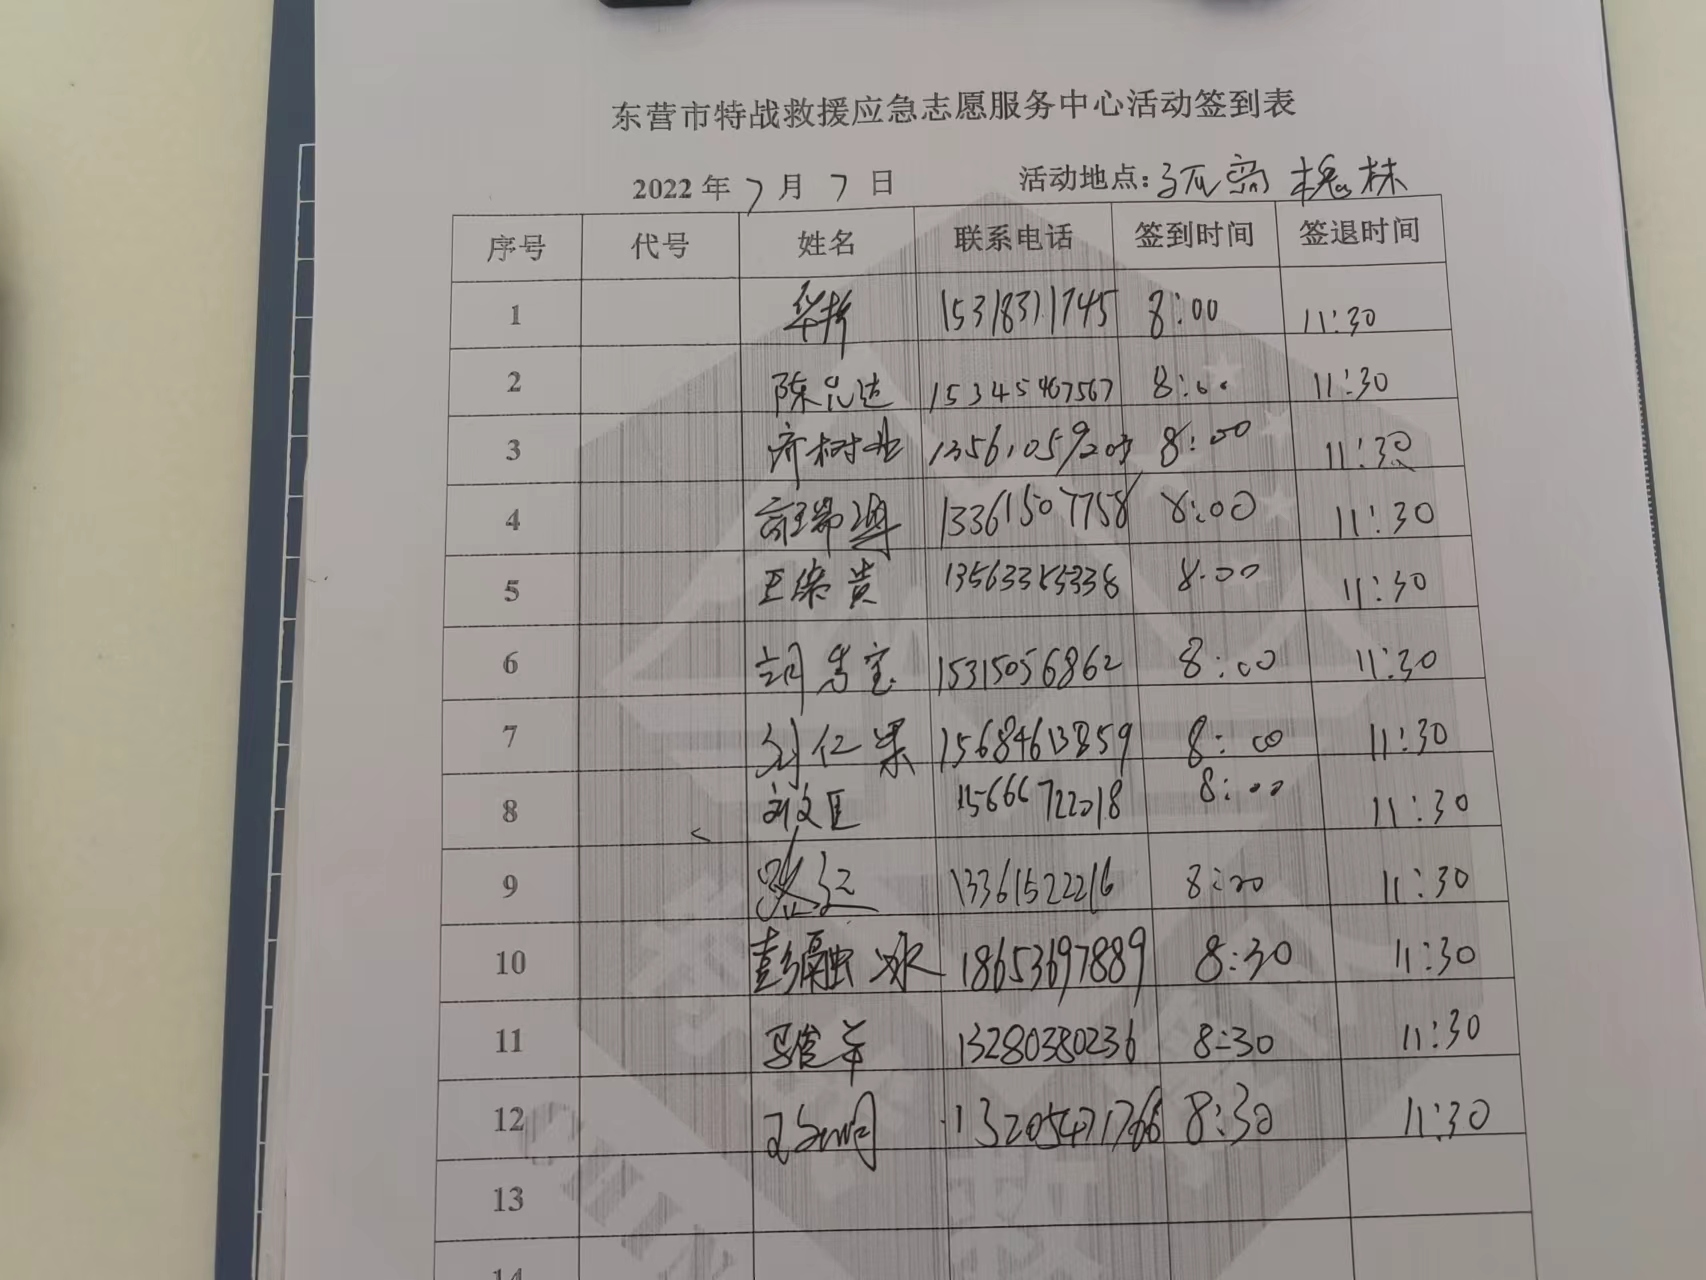 东营市特战救援应急志愿服务中心活动签到表
2022年7月7日 活动地点:孤岛槐林
序号 代号 姓名 联系电话 签到时间 签退时间
1 15318371745 8:00 11:30
2 陈 达 15345467567 8:00 11:30
3 齐树业 8:00 11:30
4 13361507758 8:00 11:30
5 王保贵 8:00 11:30
6 胡秀宝 15315056862 8:00 11:30
7 刘仁果 15684613859 8:00 11:30
8 刘文臣 15666722018 8:00 11:30
9 张红 13361522216 8:20 11:30
10 彭融冰 18653697889 8:30 11:30
11 13280380236 8:30 11:30
12 13205471766 8:30 11:30
13
14